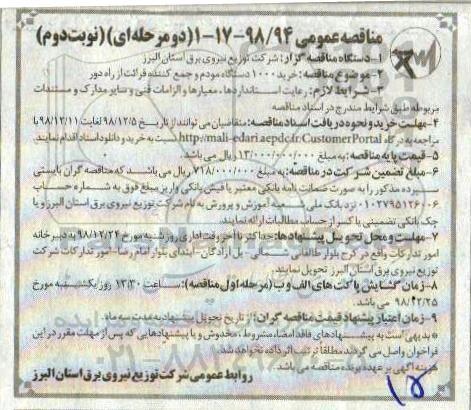 مناقصه عمومی ۹۸/۹۴-۱۷-۱ (دو مرحله ای) (نوبت دوم)
۱-دستگاه مناقصه گزار: شرکت توزیع نیروی برق استان البرز
۲-موضوع مناقصه: خرید ۱۰۰۰ دستگاه مودم و جمع کننده قرائت از راه دور
۳-شرایط لازم: رعایت استانداردها، معیارها و الزامات فنی و سایر مدارک و مستندات
مربوطه طبق شرایط مندرج در اسناد مناقصه
۴-مهلت خرید و نحوه دریافت اسناد مناقصه: متقاضیان می توانند از تاریخ ۹۸/۱۲/۵ لغایت ۹۸/۱۲/۱۱ با
مراجعه به درگاه http://mali-edari.aepdc.ir:CustomerPortal نسبت به خرید و دانلود اسناد اقدام نمایند.
۵-قیمت پایه مناقصه: به مبلغ ۱۳/۰۰۰/۰۰۰/۰۰۰ ریال می باشد.
۶-مبلغ تضمین شرکت در مناقصه: به مبلغ ۷۱۸/۰۰۰/۰۰۰ ریال می باشد که مناقصه گران بایستی
سپرده مذکور را به صورت ضمانت نامه بانکی معتبر یا فیش بانکی واریز مبلغ فوق به شماره حساب
۰۱۰۲۷۹۵۱۲۶۰۰۶ نزد بانک ملی شعبه آموزش و پرورش به نام شرکت توزیع نیروی برق استان البرز و یا
چک بانکی تضمینی یا کسر از حساب مطالبات ارائه نمایند.
۷-مهلت و محل تحویل پیشنهادها: حداکثر تا آخر وقت اداری روز شنبه مورخ ۹۸/۱۲/۲۴ به دبیرخانه
امور تدارکات واقع در کرج بلوار طالقانی شمالی-پل آزادگان-ابتدای بلوار امام رضا-امور تدارکات شرکت
توزیع نیروی برق استان البرز تحویل نمایند.
۸-زمان گشایش پاکت های الف و ب (مرحله اول مناقصه): ساعت ۱۳:۳۰ روز یکشنبه مورخ
۹۸/۱۲/۲۵ می باشد.
۹-زمان اعتبار پیشنهاد قیمت مناقصه گران: از تاریخ تحویل پیشنهاد به مدت سه ماه.
* بدیهی است به پیشنهادهای فاقد امضاء، مشروط، مخدوش و یا پیشنهادهایی که پس از مهلت مقرر در این
فراخوان واصل می گردند مطلقا ترتیب اثر داده نخواهد شد.
هزینه آگهی بر عهده برنده مناقصه می باشد.
روابط عمومی شرکت توزیع نیروی برق استان البرز
۱۵